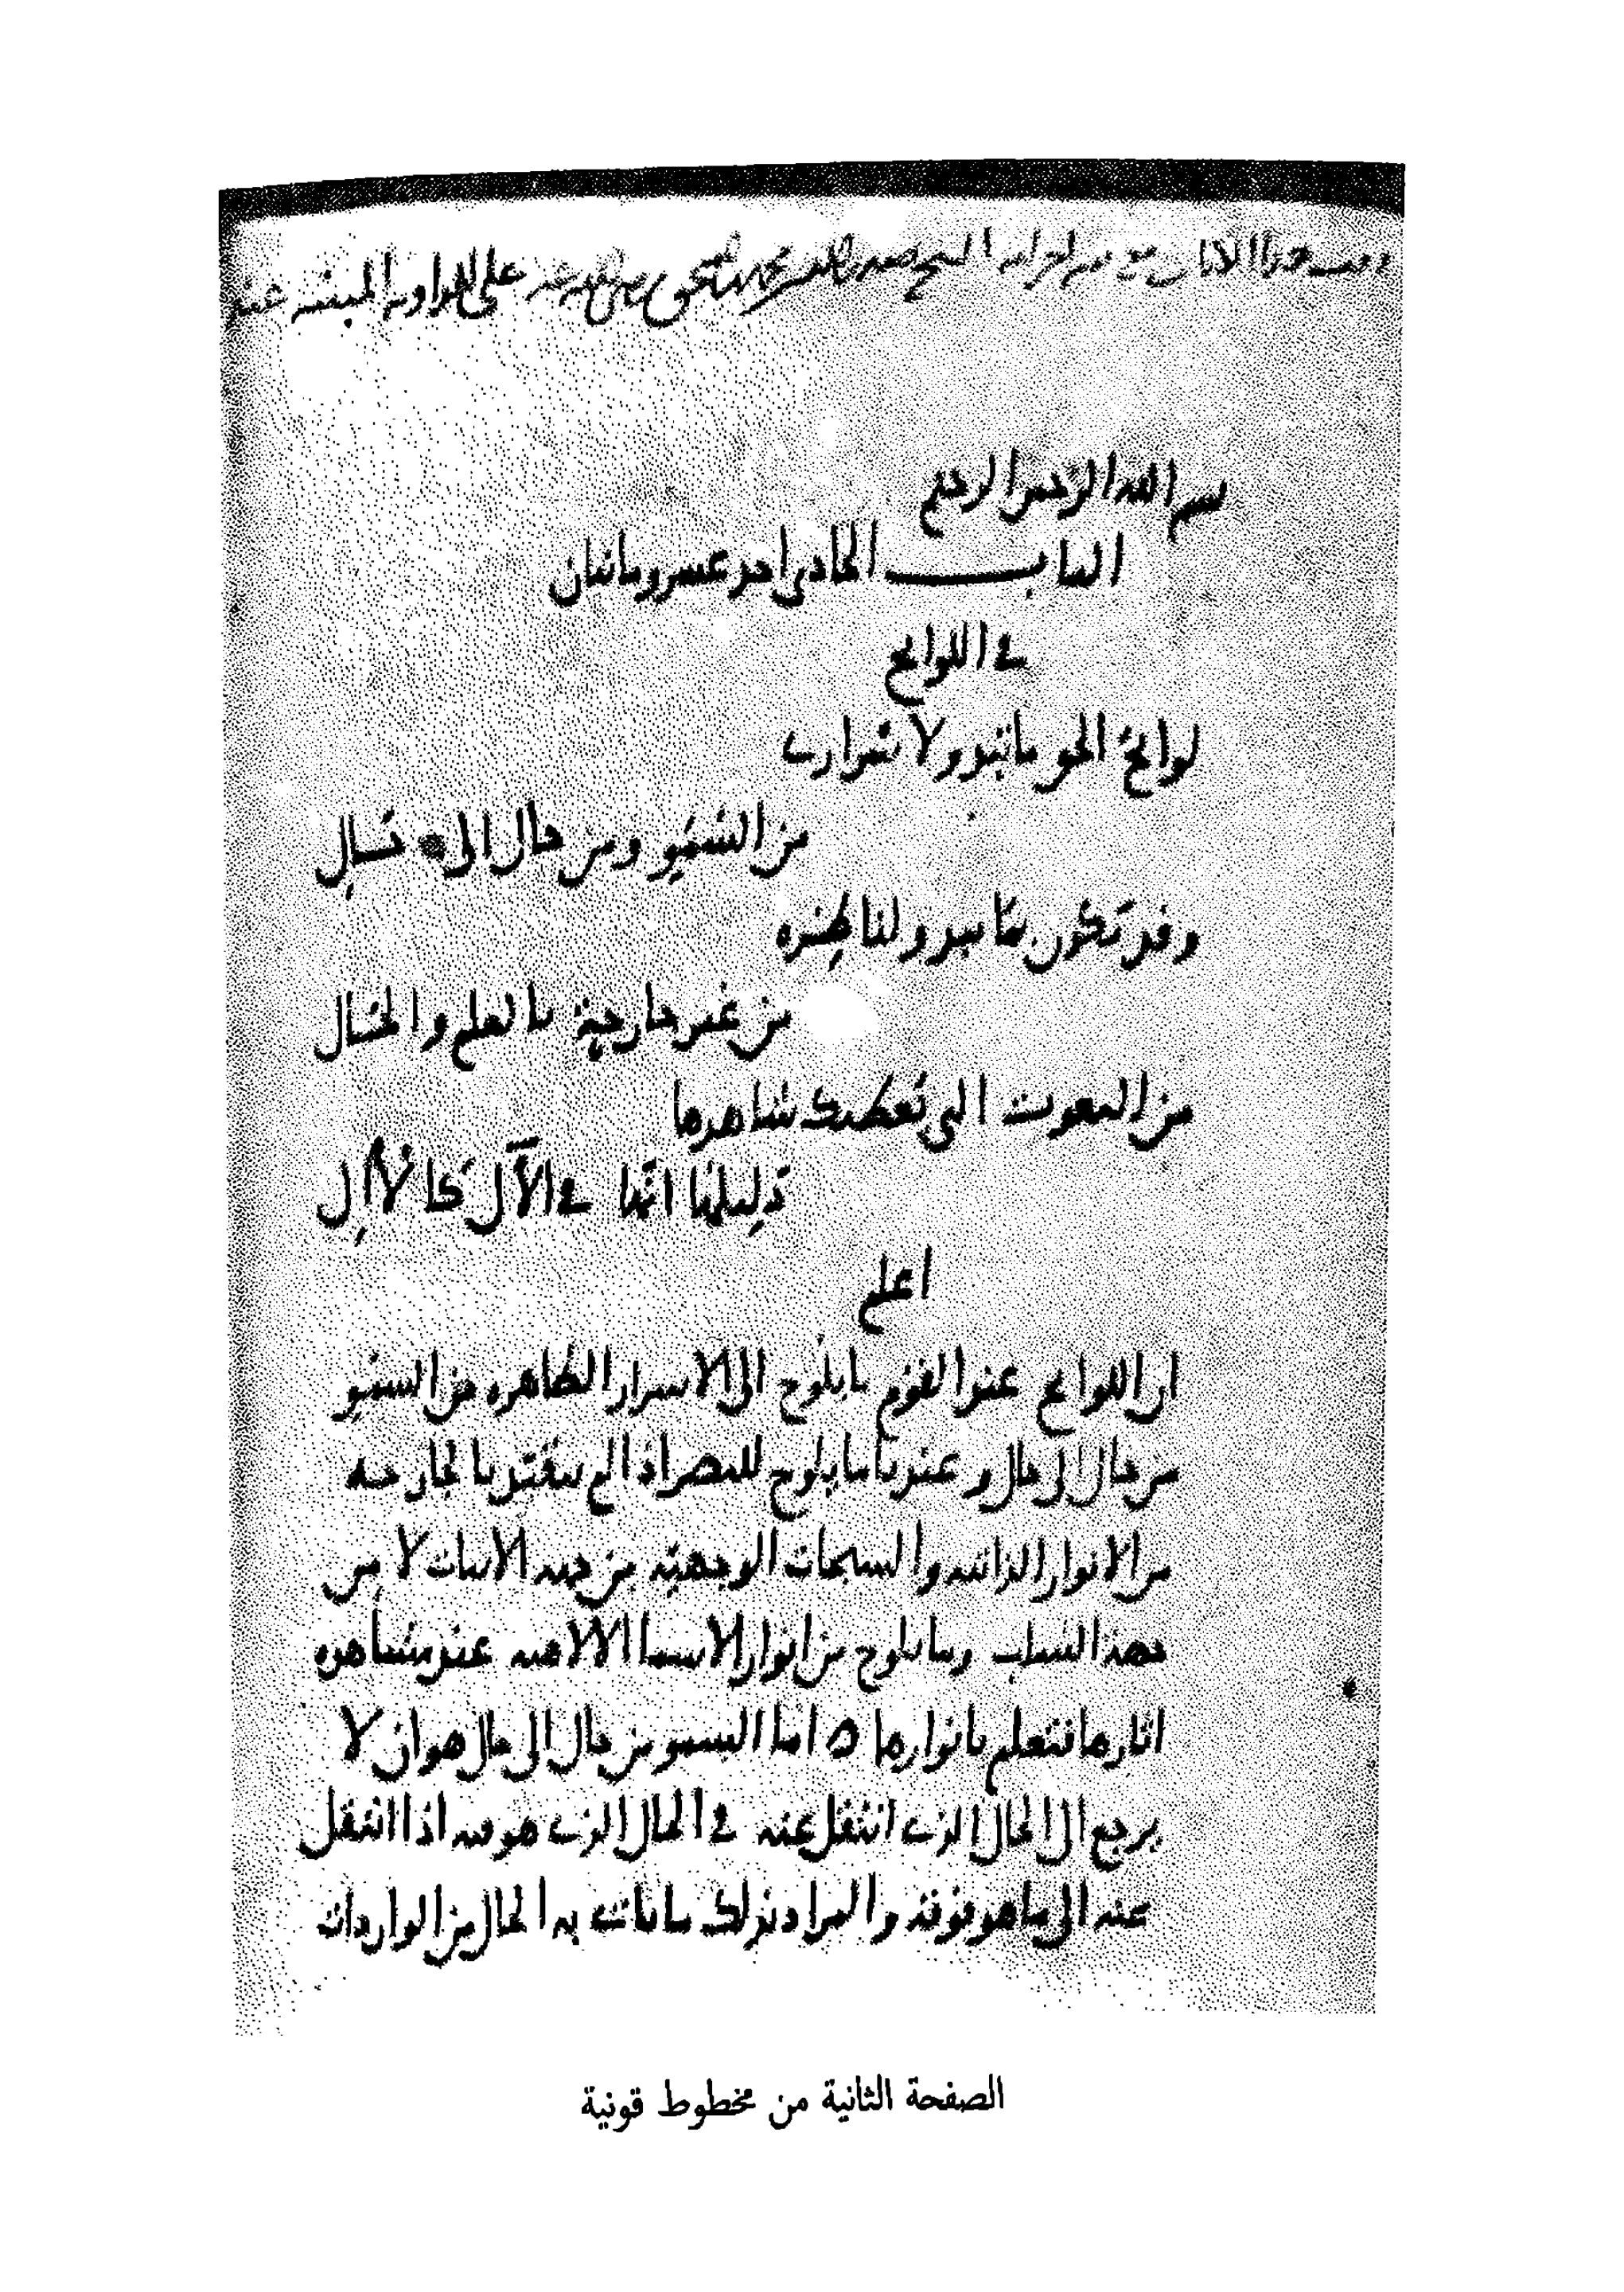 بسم الله الرحمن الرحيم
الباب الحادى احد عشر وماتيان
فى اللوايح
لوايح الحق ما تبدو ولا تتوارى
من السمو ومن حال الى حال
وقد تكون بما يبدو لناظره
من غير جارحة بالعلم والحال
من النعوت التى تعطيك شاهدها
دليلها انها فى الآل كالآل
اعلم
ان اللوايح عند القوم ما يلوح الى الاسرار الظاهره من السمو
من حال الى حال وعندنا ما يلوح للبصر اذا لم يتقيد بالجارحه
من الانوار الذاتيه والسبحات الوجهيه من جهه الاثبات لا من
جهه السلب وما يلوح من انوار الاسما الالاهيه عند مشاهده
اثارها فتعلم بانوارها ه اما السمو من حال الى حال هو ان لا
يرجع الى الحال الذى انتقل عنه فى الحال الذى هو فيه اذا انتقل
عنه الى ما هو فوقه والمراد بذلك ما يات به الحال من الواردات
الصفحة الثانية من مخطوط قونية